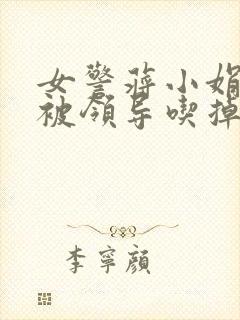 女警蒋小娟
被领导喫掉
李寧顔